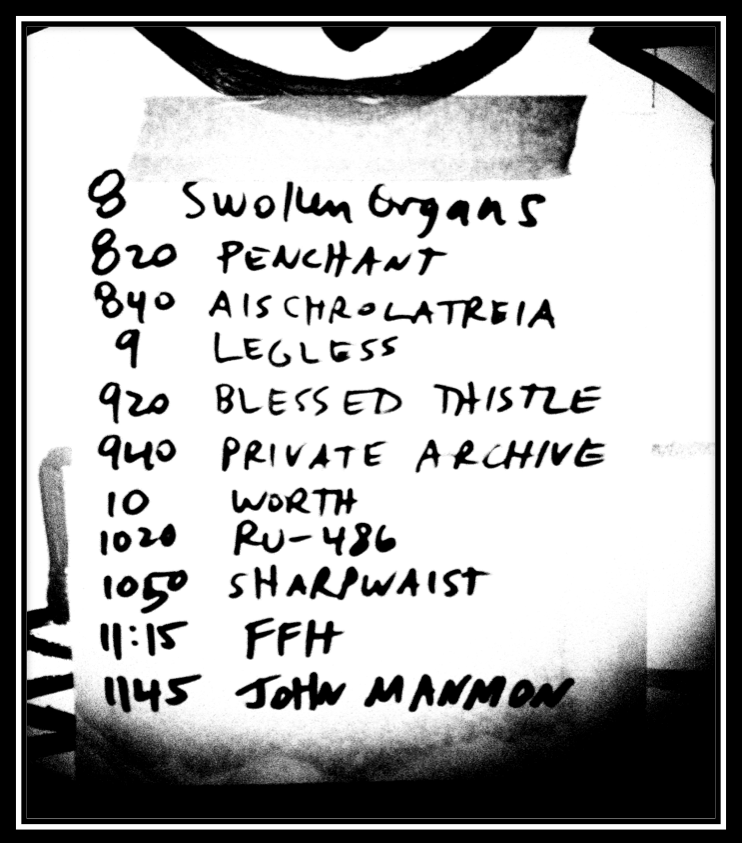 8 Swollen Organs
820 PENCHANT
840 AISCHROLATREIA
9 LEGLESS
920 BLESSED THISTLE
940 PRIVATE ARCHIVE
10 WORTH
1020 RU-486
1050 SHARPWAIST
11:15 FFH
1145 JOHN MANMON